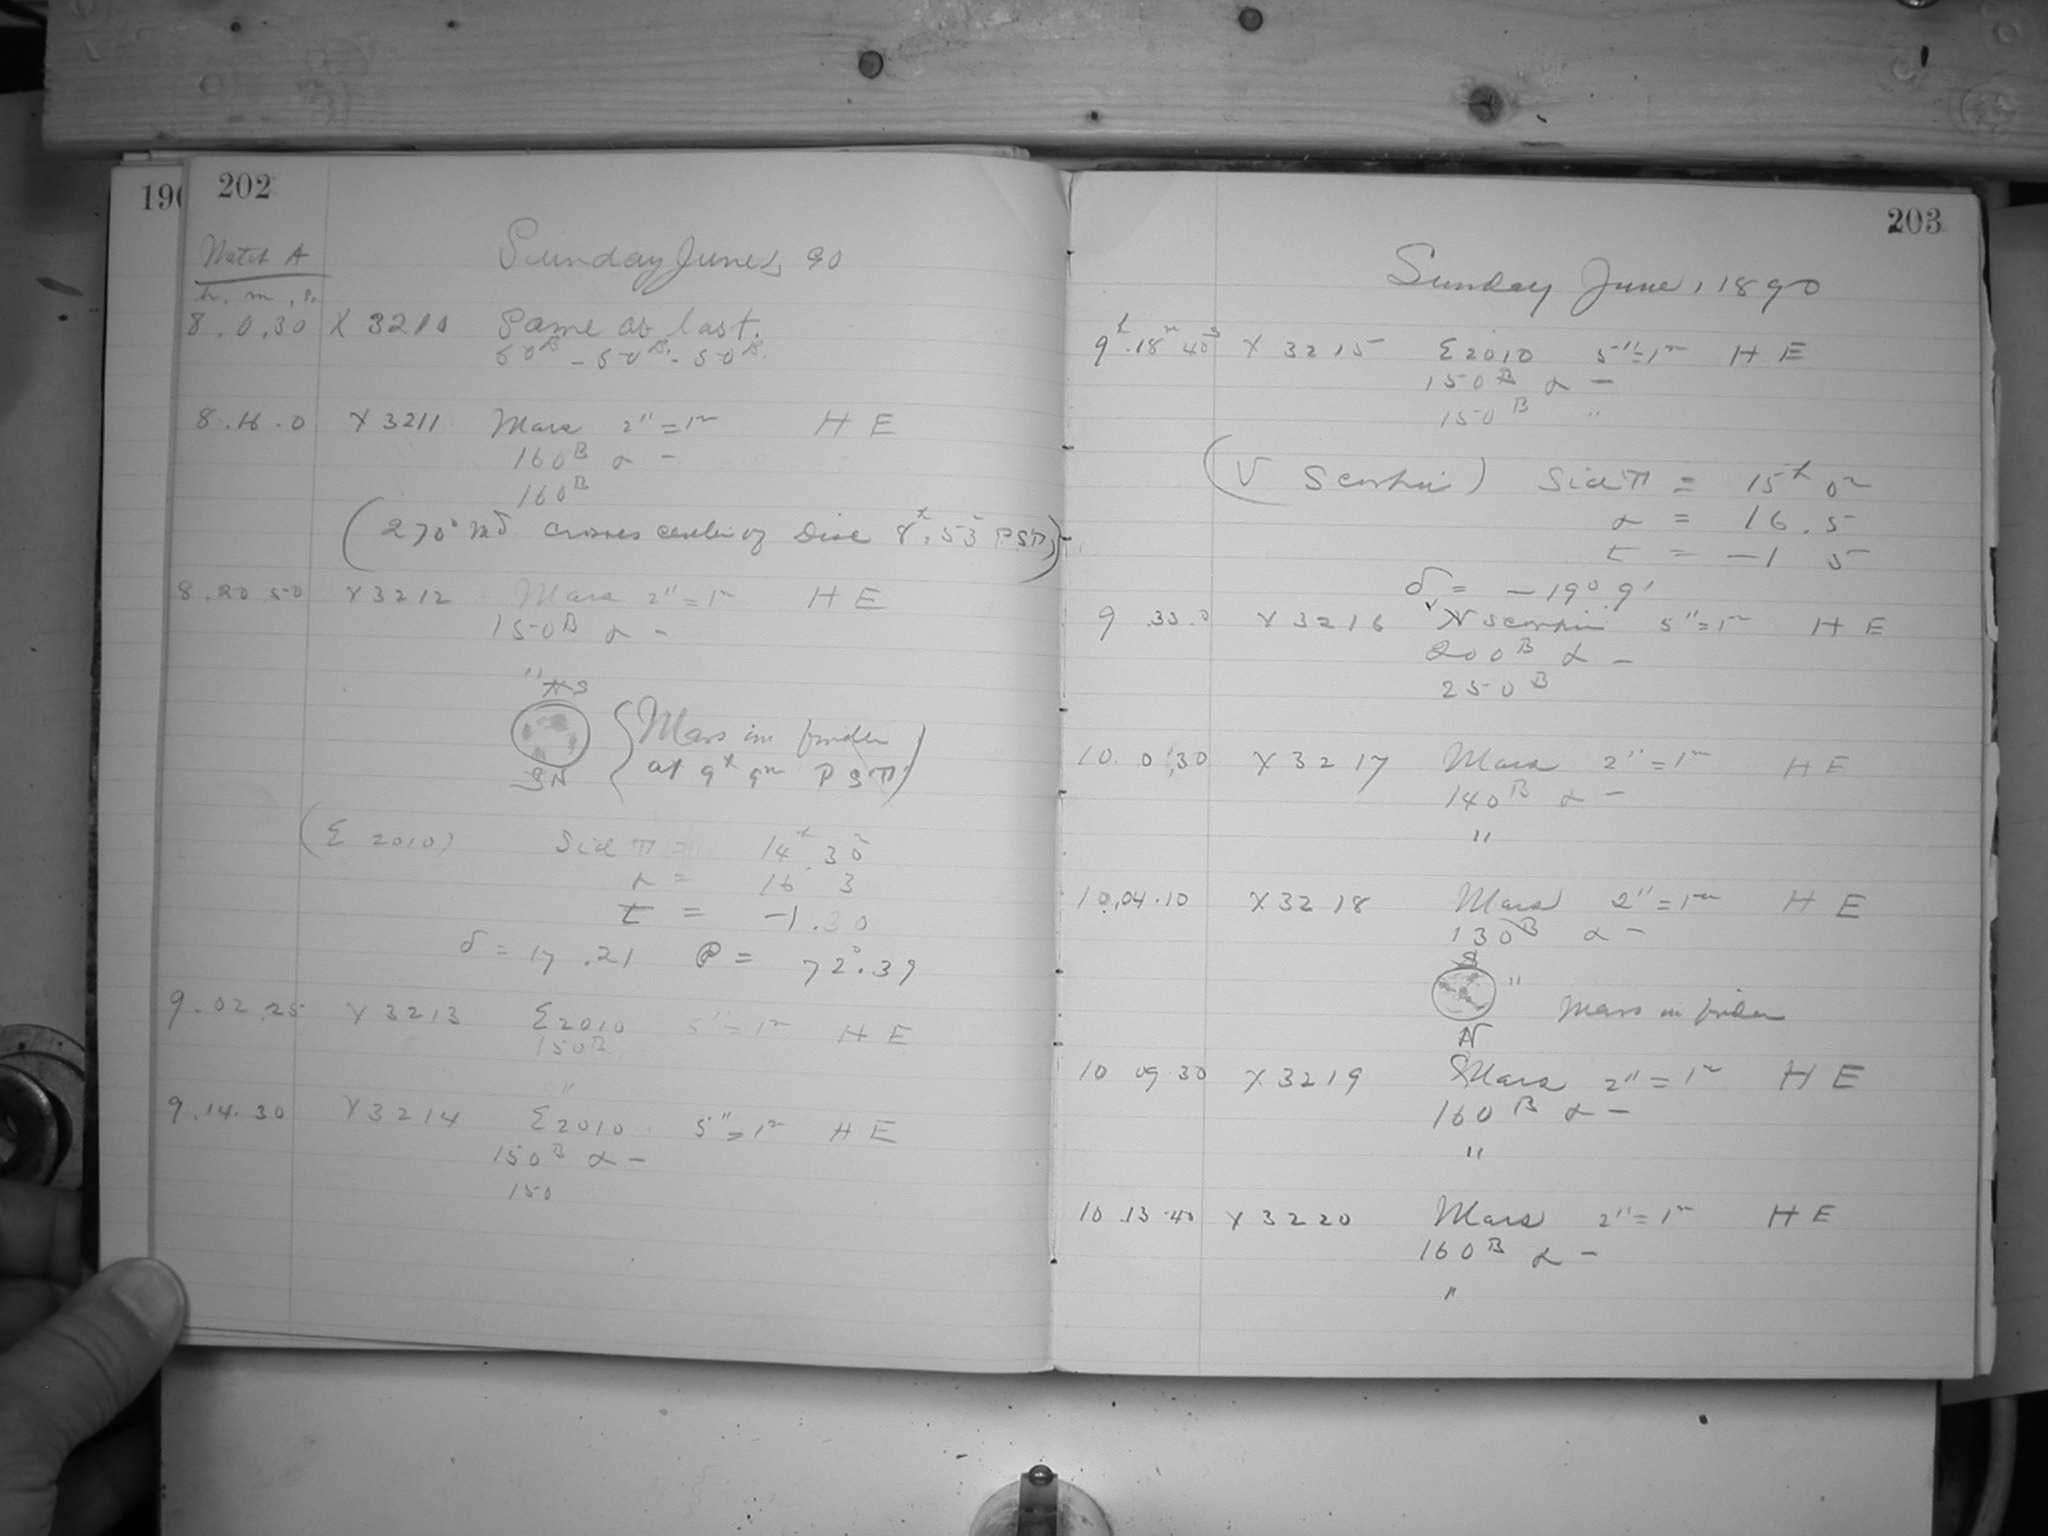 196
202
Watch A
Sunday June 1, 90
h. m. s.
8.0.30 X 3210 Same as last.
50ᴮ - 50ᴮ - 50ᴮ.
8.16.0 X 3211 Mars 2" = 1ᵐ H E
160ᴮ α -
160ᴮ
(270° md. crosses center of Disc 8ʰ.53ᵐ PST)
8.20 50 X 3212 Mars 2" = 1ᵐ H E
150ᴮ α -
" S
N
{Mars in finder
at 9ʰ 9ᵐ P S T)
(Σ 2010) Sid T = 14ʰ.30ᵐ
α = 16 3
t = -1.30
δ = 17.21 P = 72°.39
9.02.25 X 3213 Σ2010 5" = 1ᵐ H E
150ᴮ
"
9.14.30 X 3214 Σ2010 5" = 1ᵐ H E
150ᴮ α -
150
203
Sunday June 1, 1890
9ʰ.18ᵐ 40ˢ X 3215 Σ2010 5" = 1ᵐ H E
150ᴮ α -
150ᴮ "
(ν Scorpii) Sid T = 15ʰ 0ᵐ
α = 16.5
t = -1 5
δ = -19° 9'
9 33.0 X 3216 ν Scorpii 5" = 1ᵐ H E
200ᴮ α -
250ᴮ
10. 0.30 X 3217 Mars 2" = 1ᵐ H E
140ᴮ α -
"
10.04.10 X 3218 Mars 2" = 1ᵐ H E
130ᴮ α -
S
" Mars in finder
N
10 09.30 X 3219 Mars 2" = 1ᵐ H E
160ᴮ α -
"
10 13.40 X 3220 Mars 2" = 1ᵐ H E
160ᴮ α -
"